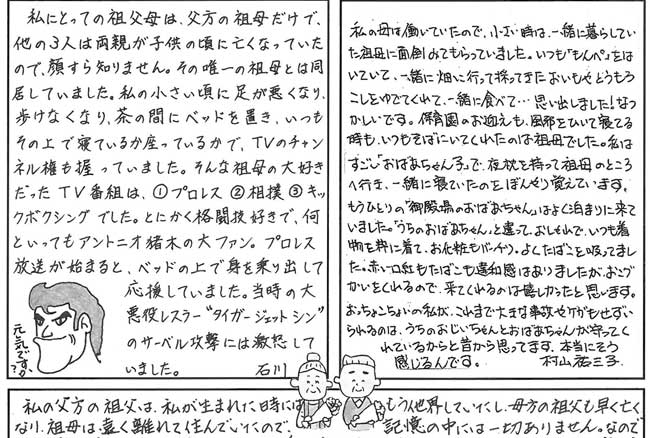 私にとっての祖父母は、父方の祖母だけで、
他の3人は両親が子供の頃に亡くなっていた
ので、顔すら知りません。その唯一の祖母とは同
居していました。私の小さい頃に足が悪くなり、
歩けなくなり、茶の間にベッドを置き、いつも
その上で寝ているか座っているかで、TVのチャン
ネル権も握っていました。そんな祖母の大好き
だったTV番組は、①プロレス②相撲③キッ
クボクシングでした。とにかく格闘技好きで、何
といってもアントニオ猪木の大ファン。プロレス
放送が始まると、ベッドの上で身を乗り出して
応援していました。当時の大
悪役レスラー“タイガージェットシン”
のサーベル攻撃には激怒して
いました。 石川
元気ですか?
私の母は働いていたので、小さい時は、一緒に暮らしてい
た祖母に面倒みてもらっていました。いつも「もんぺ」をは
いていて、一緒に畑に行って採ってきたおいもやとうもろ
こしをゆでてくれて、一緒に食べて…思い出しました!なつ
かしいです。保育園のお迎えも、風邪をひいて寝てる
時も、いつもそばにいてくれたのは祖母でした。私は
すごい「おばあちゃん子」で、夜、枕を持って祖母のところ
へ行き、一緒に寝ていたのをぼんやり覚えています。
もうひとりの「御殿場のおばあちゃん」はよく泊まりに来て
いました。「うちのおばあちゃん」と違って、おしゃれで、いつも着
物を粋に着て、お化粧もバッチリ。よくたばこを吸ってまし
た。赤い口紅もたばこも違和感はありましたが、おこづ
かいをくれるので、来てくれるのは嬉しかったと思います。
おっちょこちょいの私が、これまで大きな事故やケガもせずい
られるのは、うちのおじいちゃんとおばあちゃんが守ってく
れているからと昔から思ってます。本当にそう
感じるんです。 村山祐三子
私の父方の祖父は、私が生まれた時には
もう他界していたし、母方の祖父も早く亡く
なり、祖母は遠く離れて住んでいたので、
記憶の中には一切ありません。なので